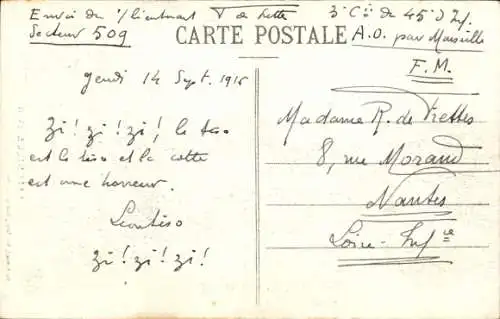 Envoi de s/lieutnant V de Frette 3e Cie de 45e d Inf.
Secteur 509
CARTE POSTALE
A.O. par Marseille
F.M.
Jeudi 14 Sept. 1916
Zi! zi! zi!, le
est le et la cotte
est une horreur.
Zi! zi! zi!
Madame R. de Frettes
8, rue Morand
Nantes
Loire-Infre